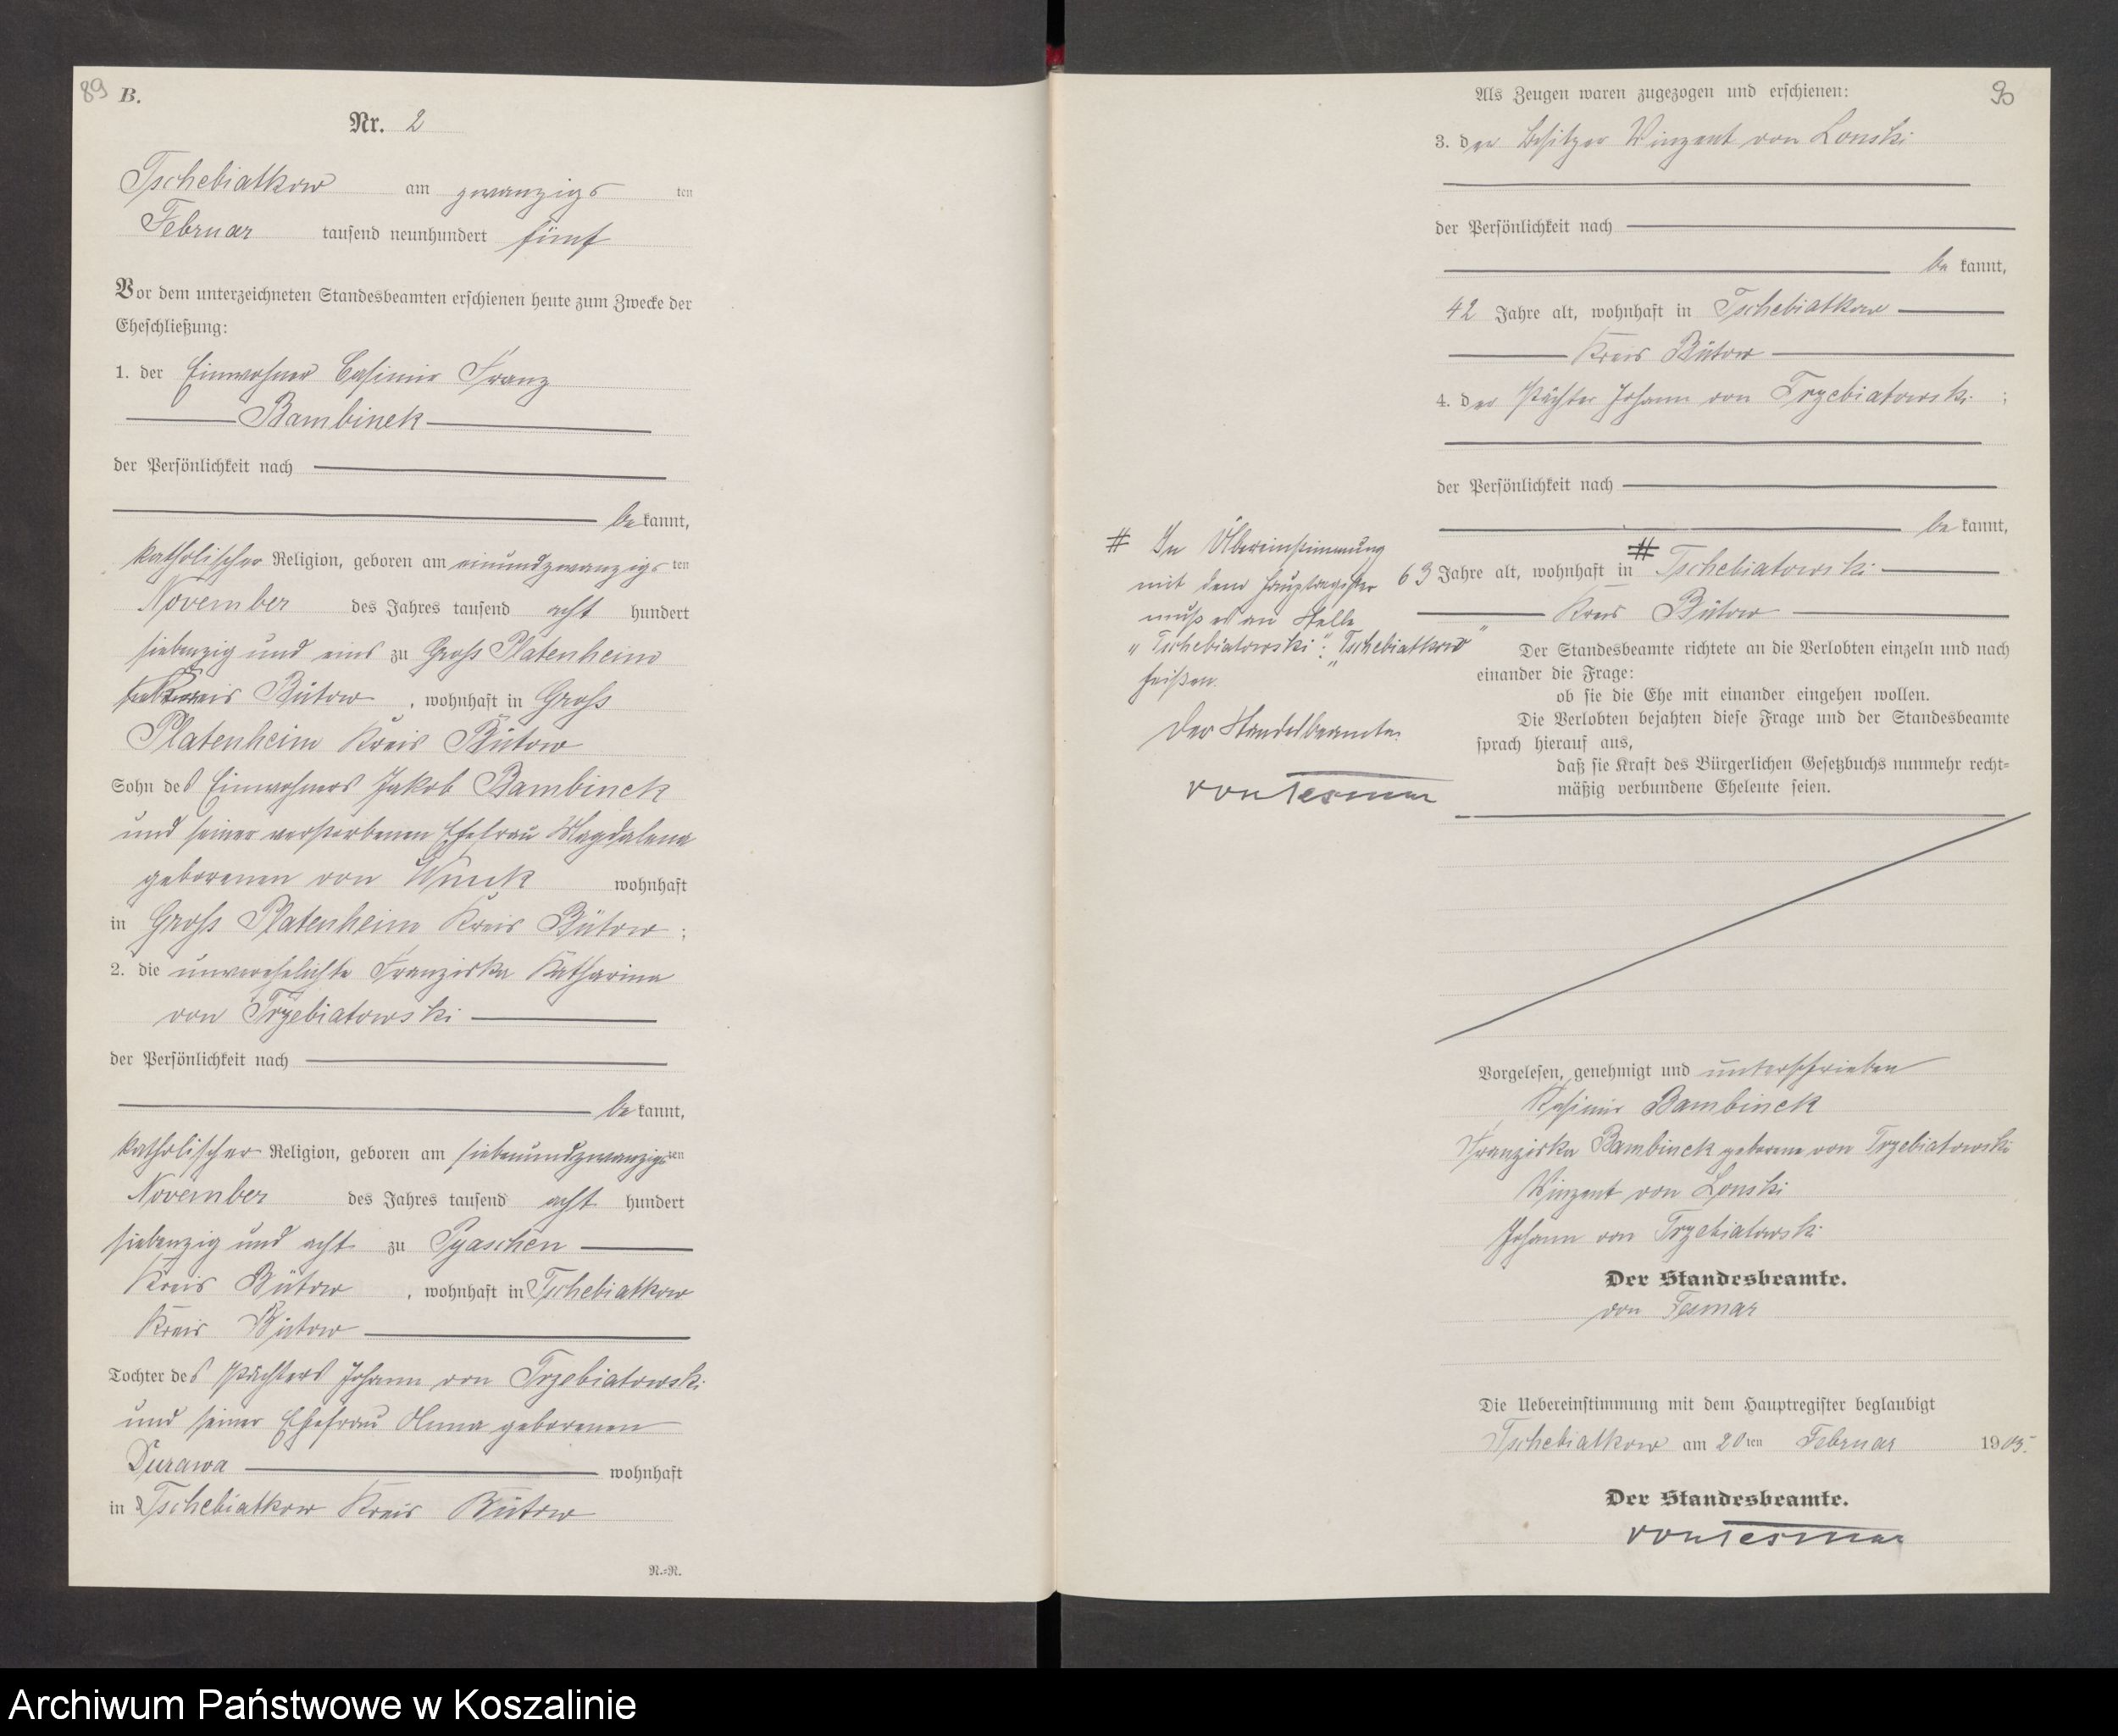 89 B.
Nr. 2
Tschebiatkow am zwanzigs ten
Februar tausend neunhundert fünf
Vor dem unterzeichneten Standesbeamten erschienen heute zum Zwecke der
Eheschließung:
1. der Einwohner Casimir Franz
Bambinek
der Persönlichkeit nach
be kannt,
katholischer Religion, geboren am einundzwanzigs ten
November des Jahres tausend acht hundert
siebenzig und eins zu Groß Platenheim
Kreis Bütow, wohnhaft in Groß
Platenheim Kreis Bütow
Sohn des Einwohners Jakob Bambinek
und seiner verstorbenen Ehefrau Magdalena
geborenen von wohnhaft
in Groß Platenheim Kreis Bütow;
2. die unverehelichte Franziska Katharina
von Trzebiatowski
der Persönlichkeit nach
be kannt,
katholischer Religion, geboren am siebenundzwanzigs ten
November des Jahres tausend acht hundert
siebenzig und acht zu Pyaschen
Kreis Bütow, wohnhaft in Tschebiatkow
Kreis Bütow
Tochter des Pächters Johann von Trzebiatowski
und seiner Ehefrau Anna geborenen
Durawa wohnhaft
in Tschebiatkow Kreis Bütow
R.=R.
90
Als Zeugen waren zugezogen und erschienen:
3. der Besitzer Vinzent von Lonski
der Persönlichkeit nach
be kannt,
42 Jahre alt, wohnhaft in Tschebiatkow
Kreis Bütow
4. der Pächter Johann von Trzebiatowski;
der Persönlichkeit nach
be kannt,
63 Jahre alt, wohnhaft in # Tschebiatowski
Kreis Bütow
# In Übereinstimmung
mit dem Hauptregister
muß es an Stelle
„Tschebiatowski": „Tschebiatkow"
heißen.
Der Standesbeamte.
von Tesmar
Der Standesbeamte richtete an die Verlobten einzeln und nach
einander die Frage:
ob sie die Ehe mit einander eingehen wollen.
Die Verlobten bejahten diese Frage und der Standesbeamte
sprach hierauf aus,
daß sie Kraft des Bürgerlichen Gesetzbuchs nunmehr recht=
mäßig verbundene Eheleute seien.
Vorgelesen, genehmigt und unterschrieben
Kasimir Bambinek
Franziska Bambinek geborene von Trzebiatowski
Vinzent von Lonski
Johann von Trzebiatowski
Der Standesbeamte.
von Tesmar
Die Uebereinstimmung mit dem Hauptregister beglaubigt
Tschebiatkow am 20 ten Februar 1905.
Der Standesbeamte.
von Tesmar
Archiwum Państwowe w Koszalinie